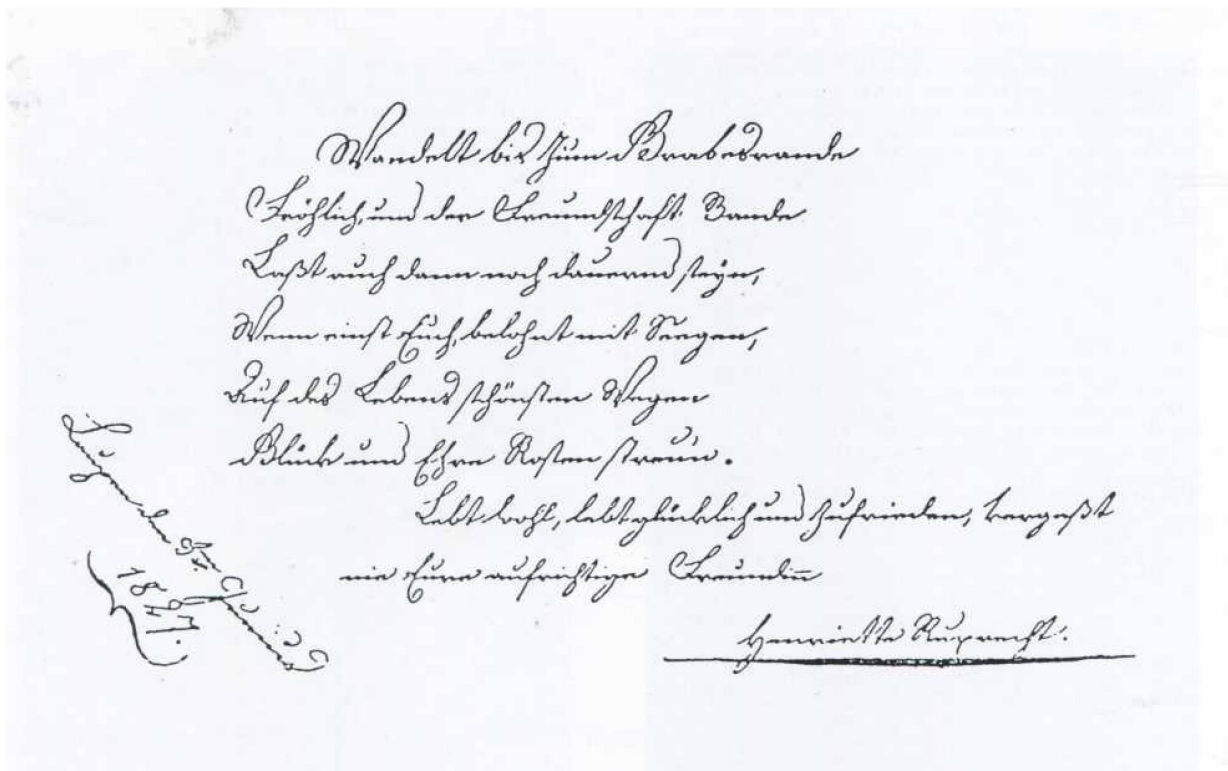 Wandelt bis zum Grabesrande
Fröhlich, und der Freundschaft Bande
Laßt auch dann noch dauernd seyn,
Wenn einst Euch, belohnt mit Seegen,
Auf des Lebens schönsten Wegen
Glück und Ehre Rosen streun.
Lebt wohl, lebt glücklich und zufrieden, vergeßt
nie Eure aufrichtige Freundin̅
Henriette Ruprecht.
den
18